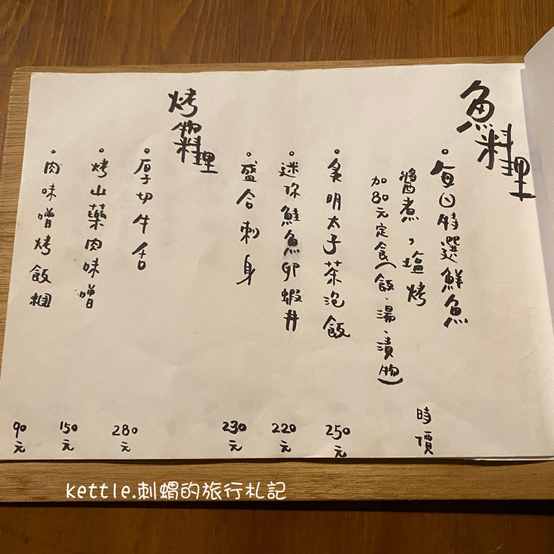 魚料理
・每日特選鮮魚
醬煮,塩烤 時價
加80元定食(飯、湯、漬物)
・炙明太子茶泡飯 250元
・迷你鮭魚卵蝦丼 220元
・盛合刺身 230元
烤物料理
・厚切牛舌 280元
・烤山藥肉味噌 150元
・肉味噌烤飯糰 90元
kettle.刺蝟的旅行札記